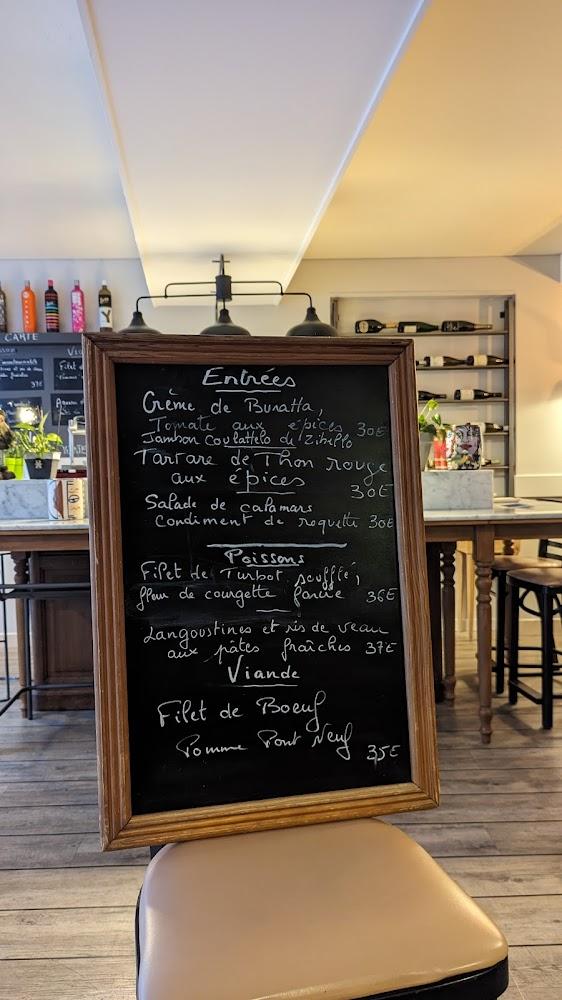 CARTE
Entrées
Crème de Buratta,
Tomate aux épices 30€
Jambon Coulattelo di Zibello
Tartare de Thon rouge
aux épices 30€
Salade de calamars
Condiment de roquette 30€
Poissons
Filet de Turbot soufflé,
fleur de courgette farcie 36€
Langoustines et ris de veau
aux pâtes fraîches 37€
Viande
Filet de Boeuf
Pomme Pont Neuf
35€